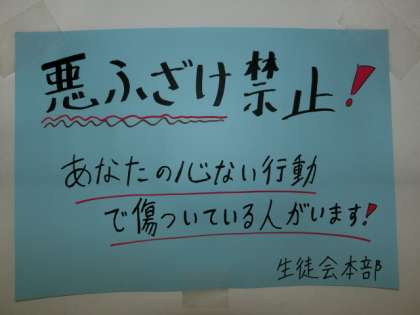 悪ふざけ禁止!
あなたの心ない行動
で傷ついている人がいます!
生徒会本部